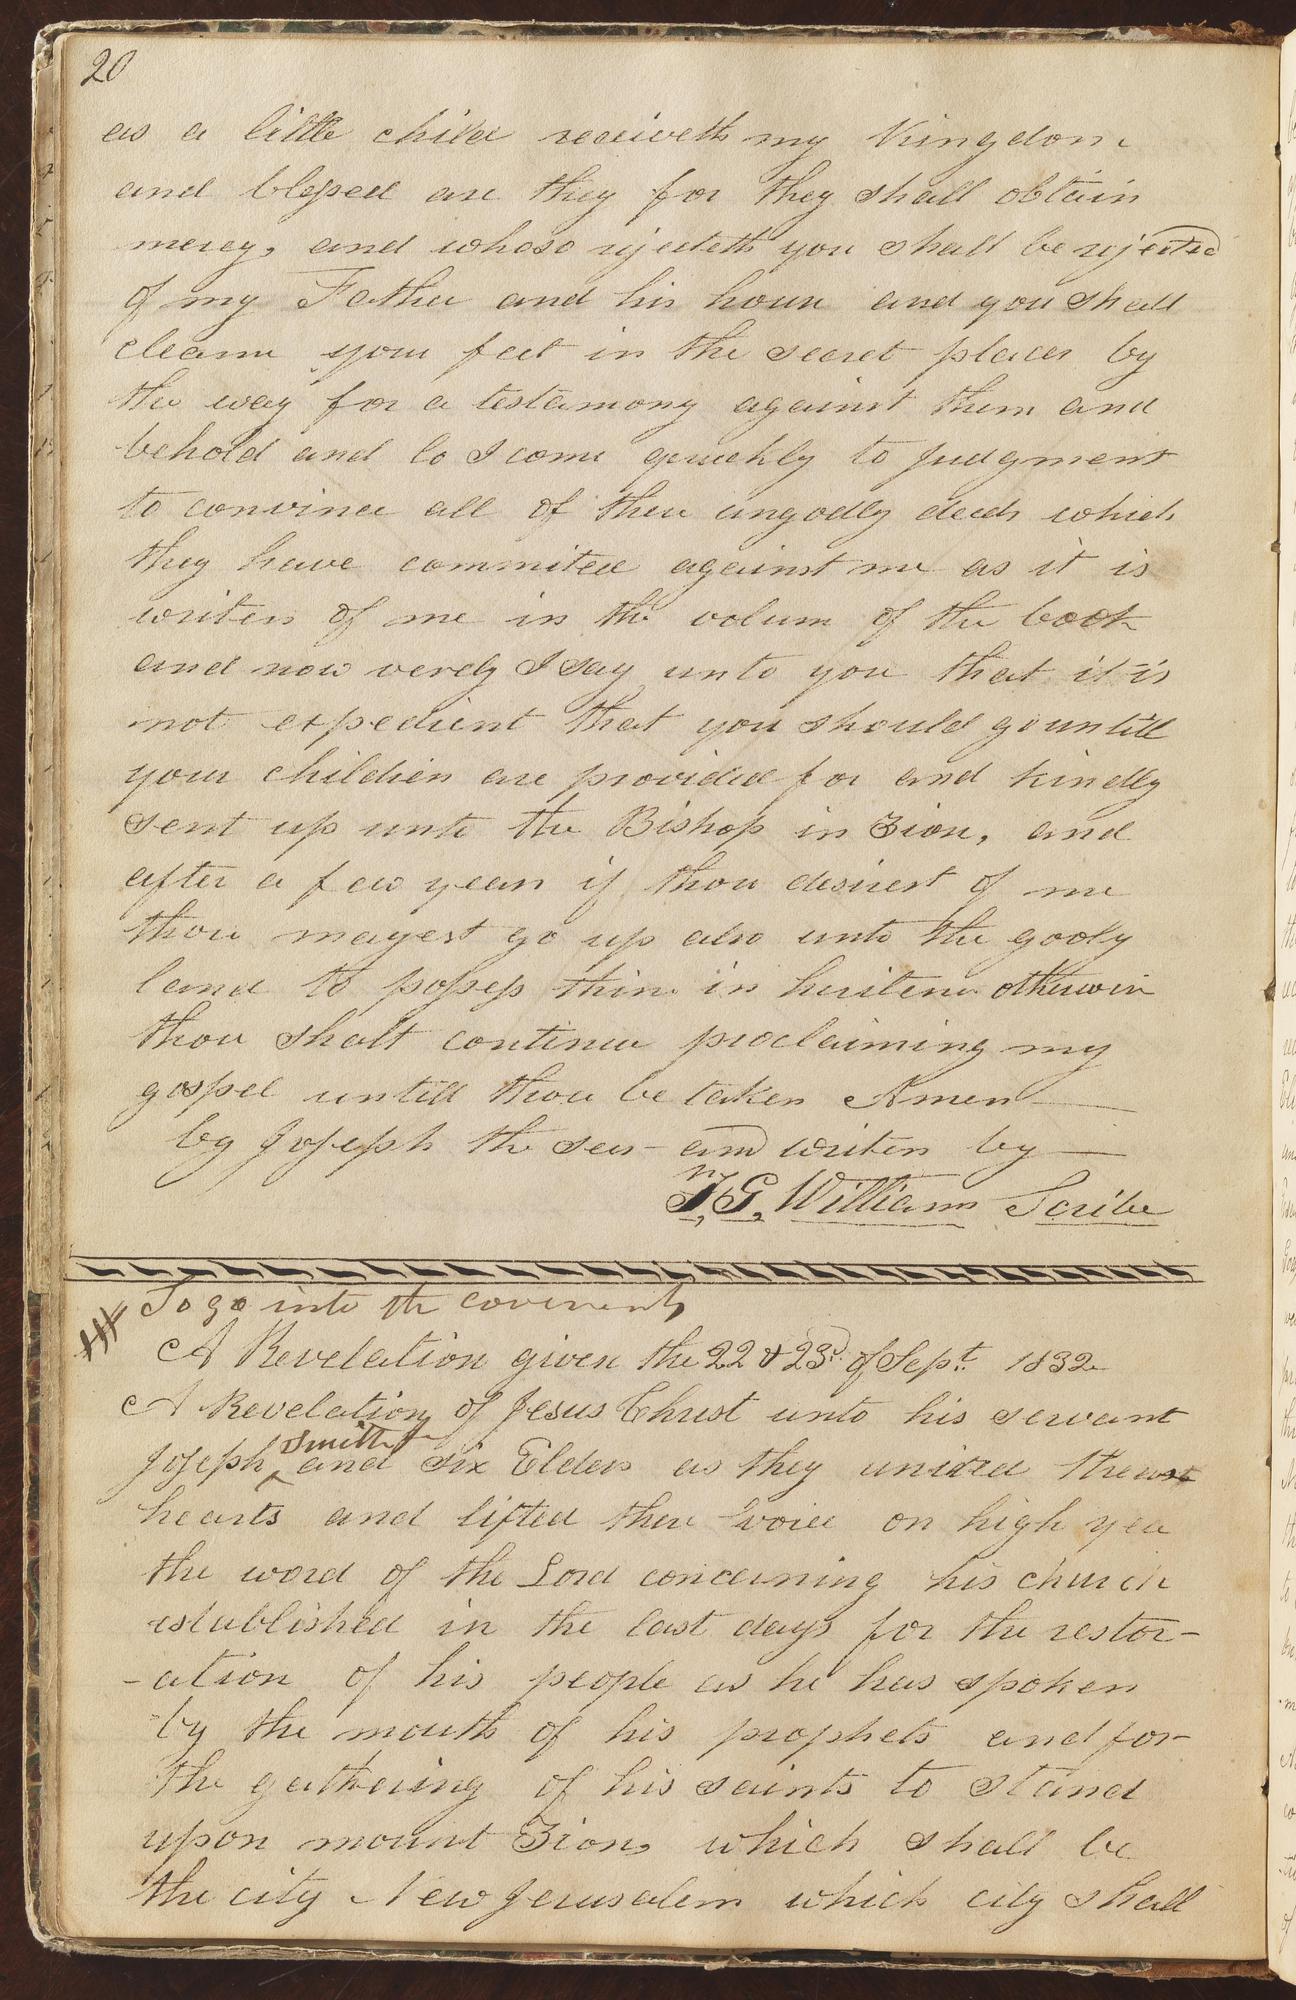 20
as a little child receiveth my Kingdom
and blessed are they for they shall obtain
mercy, and whoso rejecteth you shall be rejected
of my Father and his house and you shall
cleanse your feet in the secret places by
the way for a testamony against them and
behold and lo I come quickly to judgment
to convince all of their ungodly deeds which
they have commited against me as it is
writen of me in the volum of the book
and now verely I say unto you that it is
not expedient that you should go untill
your children are provided for and kindly
sent up unto the Bishop in Zion, and
after a few years if thou desirest of me
thou mayest go up also unto the goodly
land to possess thine in heritence otherwise
thou shalt continue proclaiming my
gospel untill thou be taken Amen
by Joseph the seer and writen by
F. G. Williams Scribe
To go into the covenants
A Revelation given the 22 & 23d. of Sept. 1832
A Revelation of Jesus Christ unto his servant
Joseph Smith jr and six Elders as they united their
hearts and lifted their voice on high yea
the word of the Lord concerning his church
established in the last days for the restor-
-ation of his people as he has spoken
by the mouth of his prophets and for
the gathering of his saints to stand
upon mount Zion, which shall be
the city New Jerusalem which city shall